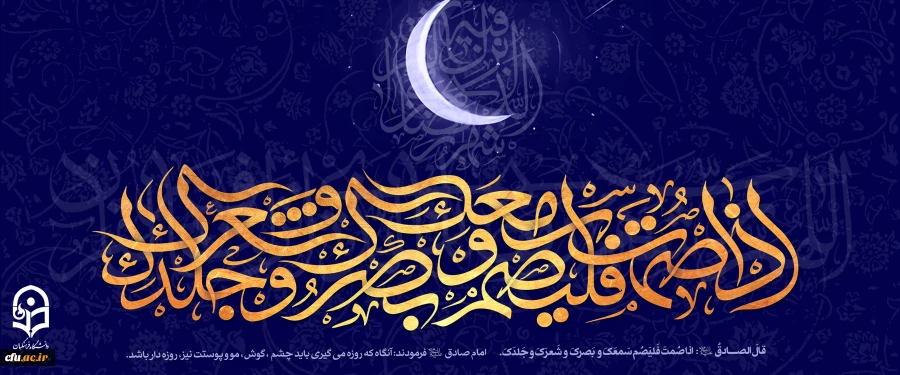 اذا صمت فلیصم سمعک و بصرک و شعرک و جلدک
قالَ الصـادقُ ﷺ: اذا صُمتَ فَلیَصُم سَمعَکَ و بَصرکَ و شَعرَکَ و جَلدَکَ.
امام صادق ﷺ فرمودند: آنگاه که روزه می گیری باید چشم ، گوش ، مو و پوستت نیز، روزه دار باشد.
دانشگاه فرهنگیان
cfu.ac.ir